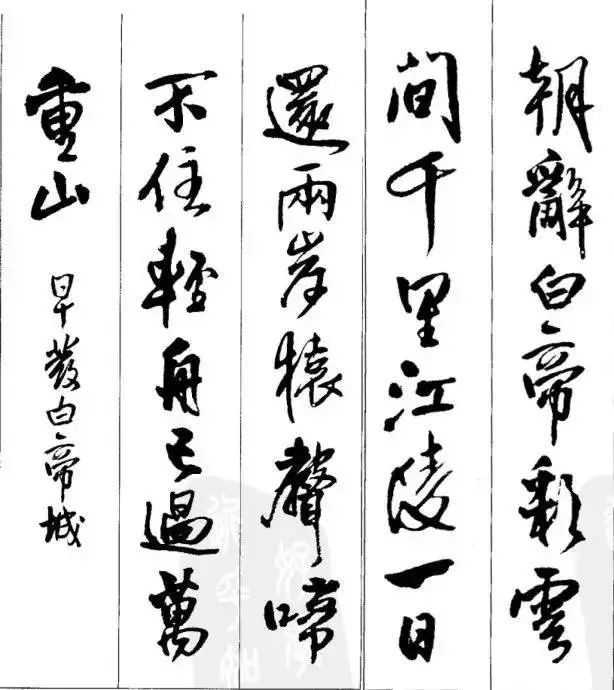 朝辭白帝彩雲
間千里江陵一日
還兩岸猿聲啼
不住輕舟已過萬
重山
早發白帝城